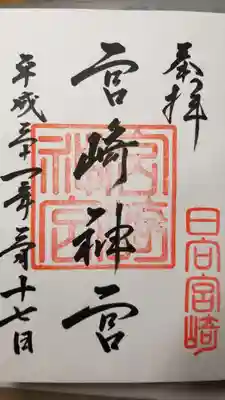 奉拝
日向宮崎
宮崎神宮
宮崎神宮
平成三十一年三月十七日